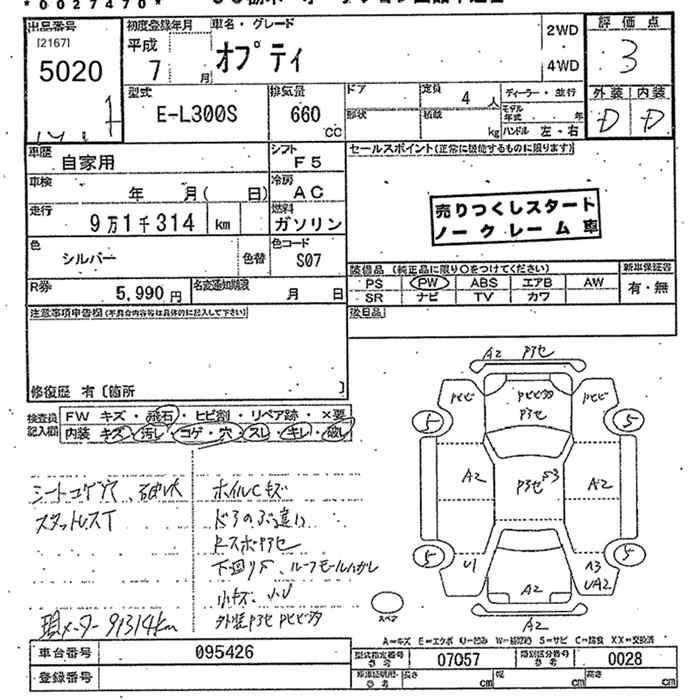 *0027470*
出品番号
[2167]
5020
初度登録年月
平成
7 月
車名・グレード
オプティ
2WD
4WD
評価点
3
外装 内装
D D
型式
E-L300S
排気量
660 CC
ドア
定員
4 人
形状
積載
kg
ディーラー・並行
モデル年式 年
ハンドル 左・右
車歴
自家用
シフト
F5
車検
年 月( 日)
冷房
AC
走行
9万1千314 km
燃料
ガソリン
色
シルバー
色替
色コード
S07
R券
5,990 円
名変通知期限
月 日
セールスポイント(正常に機能するものに限ります)
売りつくしスタート
ノークレーム車
装備品(純正品に限り○をつけてください)
新車保証書
PS PW ABS エアB AW
有・無
SR ナビ TV カワ
後日品
注意事項申告欄(不具合内容等は具体的に記入して下さい)
修復歴 有〔箇所 〕
検査員記入欄
FW キズ・飛石・ヒビ割・リペア跡・×要
内装 キズ・汚レ・コゲ・穴・スレ・キレ・破レ
シートコゲ穴、破レ大
スタットレスT
ホイルCキズ
ドアのぶ違い
下回りS、ルーフモールハガレ
現メーター 91314km
A2
A2
A2
A2
A2
U1
A3
UA2
5
5
5
5
スペア
A=キズ E=エクボ U=凹み W=補修跡 S=サビ C=腐食 XX=交換済
車台番号
095426
登録番号
型式指定番号
参考
07057
類別区分番号
参考
0028
長さ cm
幅 cm
高さ cm